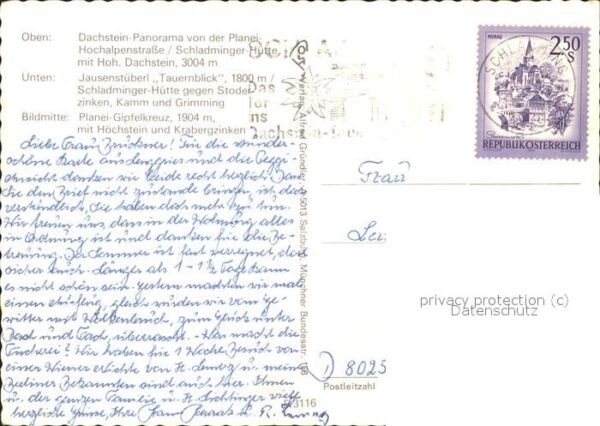 Oben: Dachstein-Panorama von der Planei-
Hochalpenstraße / Schladminger-Hütte
mit Hoh. Dachstein, 3004 m
Unten: Jausenstüberl „Tauernblick", 1800 m /
Schladminger-Hütte gegen Stoder-
zinken, Kamm und Grimming
Bildmitte: Planei-Gipfelkreuz, 1904 m,
mit Höchstein und Krabergzinken
Liebe Frau ! Für die wunder-
schöne Karte aus Lenggries und die
danken wir beide recht herzlich. Dass
Sie den Brief nicht zustande bringen, ist doch
verständlich, Sie haben doch mehr zu tun.
Wir freuen uns, dass in der Wohnung alles
in Ordnung ist und danken für die Be-
treuung. Der Sommer ist fast verregnet, dort
sicher auch. Länger als 1 - 1 ½ Tage kann
es nicht schön sein. Gestern machten wir mal
einen Ausflug, gleich wurden wir vom Ge-
witter mit Wolkenbruch, zum Glück unter
Dach und Fach, überrascht. - Was macht die
Fischerei? Wir haben für 1 Woche Besuch von
einer Wiener u. meine
Berliner Bekannten sind auch hier. Ihnen
u. der ganzen Familie u. viele
herzliche Grüsse, Ihre
Verlag Alfred Gründler, 5013 Salzburg, Münchner Bundesstr.
3116
Das
Tor
ins
Dachstein-
SCHLADMING
MURAU
2.50
S
REPUBLIK ÖSTERREICH
Frau
D 8025
Postleitzahl
privacy protection (c)
Datenschutz